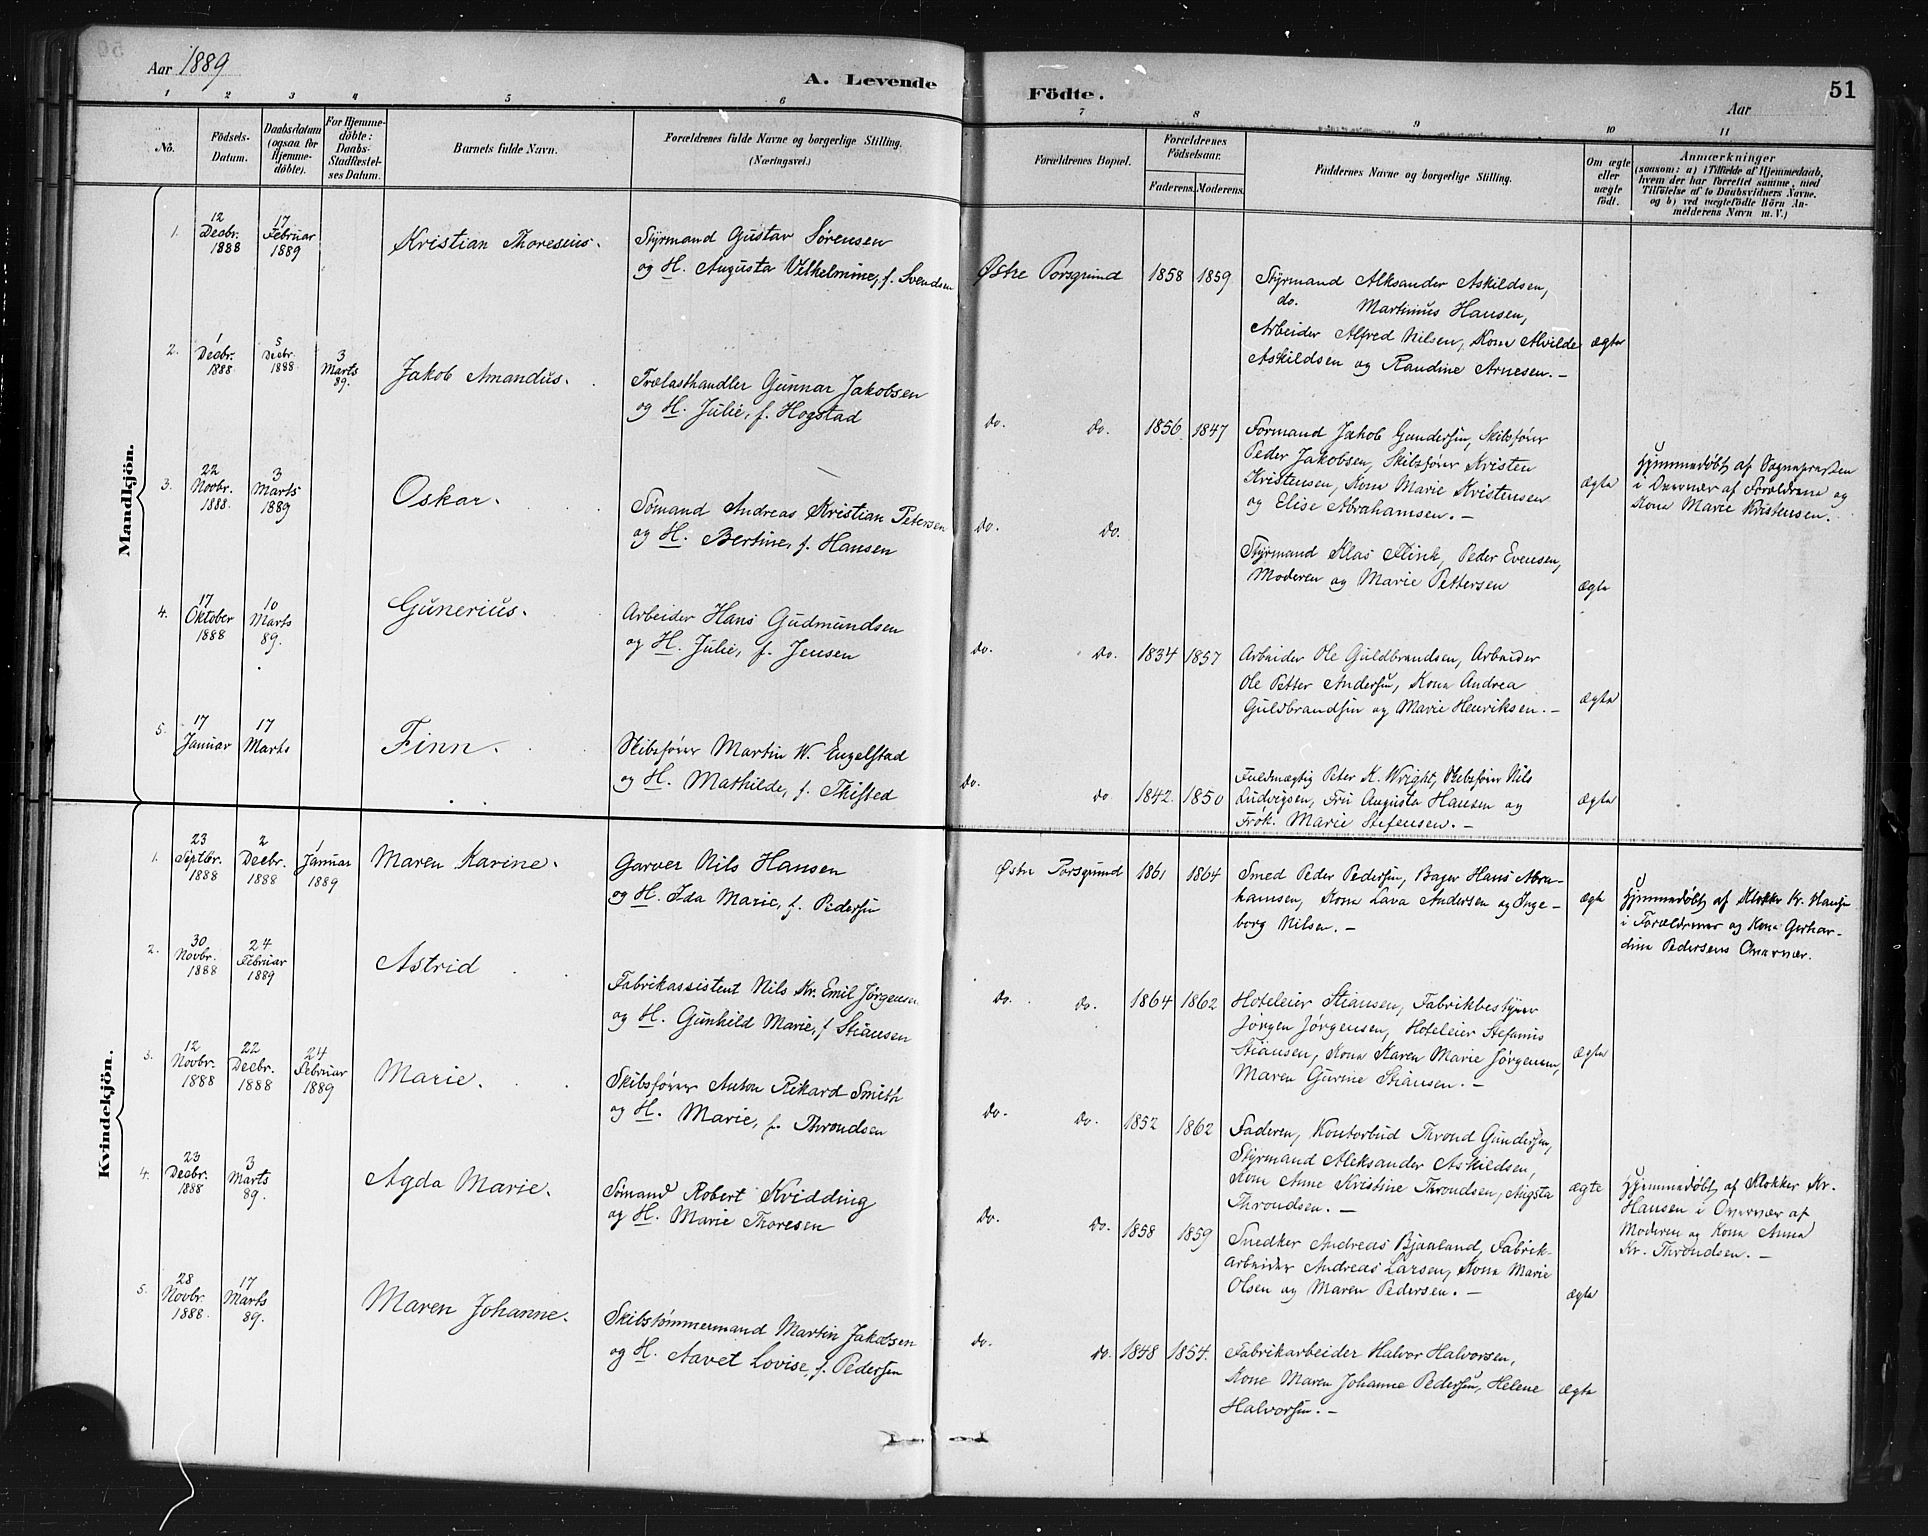 Aar 1889
A. Levende
Födte.
Aar
51
1
2
3
4
5
6
7
8
9
10
11
No.
Födsels-
Datum.
Daabsdatum
(ogsaa for
Hjemme-
döbte).
For Hjemme-
döbte:
Daabs-
Stadfæstel-
ses Datum.
Barnets fulde Navn.
Forældrenes fulde Navne og borgerlige Stilling.
(Næringsvei.)
Forældrenes Bopæl.
Forældrenes
Födselsaar.
Faderens.
Moderens.
Faddernes Navne og borgerlige Stilling.
Om ægte
eller
uægte
födt.
Anmærkninger
(saasom: a) i Tilfælde af Hjemmedaab,
hvem der har forrettet samme, med
Tilföielse af to Daabsvidners Navne.
og b) ved uægtefödte Börn An-
melderens Navn m. V.)
Mandkjön.
1.
12
Decbr.
1888
17
Februar
1889
Kristian Thoresius.
Styrmand Gustav Sørensen
og H. Augusta Vilhelmine, f. Svendsen
Østre Porsgrund
1858
1859
Styrmand Aleksander Askildsen,
do. Martinius Hansen,
Arbeider Alfred Nilsen, Kone Alvilde
Askildsen og Randine Arnesen. –
ægte
2.
1
Decbr.
1888
5
Decbr.
1888
3
Marts
89.
Jakob Amandus.
Trælasthandler Gunnar Jakobsen
og H. Julie, f. Hogstad
do. do.
1856
1847
Formand Jakob Gundersen, Skibsfører
Peder Jakobsen, Skibsfører Kristen
Kristensen, Kone Marie Kristensen
og Elise Abrahamsen. –
ægte
Hjemmedøbt af Sognepresten
i Overvær af Forældrene og
Kone Marie Kristensen.
3.
22
Novbr.
1888
3
Marts
1889
Oskar.
Sømand Andreas Kristian Petersen
og H. Bertine, f. Hansen
do. do.
Styrmand Klas Flink, Peder Evensen,
Moderen og Marie Pettersen
ægte
4.
17
Oktober
1888
10
Marts
89.
Gunerius.
Arbeider Hans Gudmundsen
og H. Julie, f. Jensen
do. do.
1834
1857
Arbeider Ole Guldbrandsen, Arbeider
Ole Petter Andersen, Kone Andrea
Guldbrandsen og Marie Henriksen. –
ægte
5.
17
Januar
17
Marts
Finn.
Skibsfører Martin W. Engelstad
og H. Mathilde, f. Thisted
do. do
1842.
1850
Fuldmægtig Peter K. Wright, Skibsfører Nils
Ludvigsen, Fru Augusta Hansen og
Frøk. Marie Stefensen. –
ægte
Kvindekjön.
1.
23
Septbr.
1888
2
Decbr.
1888
1
Januar
1889
Maren Karine.
Garver Nils Hansen
og H. Ida Marie, f. Pedersen
Østre Porsgrund
1861
1864
Smed Peder Pedersen, Bager Hans Abra-
hamsen, Kone Lava Andersen og Inge-
borg Nilsen. –
ægte
Hjemmedøbt af Klokker Kr. Hansen
i Forældrenes og Kone Gerhar-
dine Pedersens Overvær.
2.
30
Novbr.
1888
24
Februar
1889
Astrid
Fabrikassistent Nils Kr. Emil Jørgensen
og H. Gunhild Marie, f. Stiansen
do. do.
1864
1862
Hoteleier Stiansen, Fabrikbestyrer
Jørgen Jørgensen, Hoteleier Stefanus
Stiansen, Kone Karen Marie Jørgensen,
Maren Gurine Stiansen. –
ægte
3.
12
Novbr.
1888
22
Decbr.
1888
24
Februar
1889
Marie.
Skibsfører Anton Rikard Smith
og H. Marie, f. Throndsen
do. do.
1852
1862
Faderen, Kontorbud Thrond Gundersen,
Styrmand Aleksander Askildsen,
Kone Anne Kristine Throndsen, Augsta
Throndsen. –
ægte
Hjemmedøbt af Klokker Kr.
Hansen i Overvær af
Moderen og Kone Anna
Kr. Throndsen. –
4.
23
Decbr.
1888
3
Marts
89.
Agda Marie.
Sømand Robert Kvidding
og H. Marie Thoresen
do. do.
1858
1859
Snedker Andreas Bjaaland, Fabrik-
arbeider Andreas Larsen, Kone Marie
Olsen og Maren Pedersen. –
ægte
5.
28
Novbr.
1888.
17
Marts
89.
Maren Johanne.
Skibstømmermand Martin Jakobsen
og H. Aavet Lovise, f. Pedersen
do. do.
1848
1854.
Fabrikarbeider Halvor Halvorsen,
Kone Maren Johanne Pedersen, Helene
Halvorsen. –
ægte